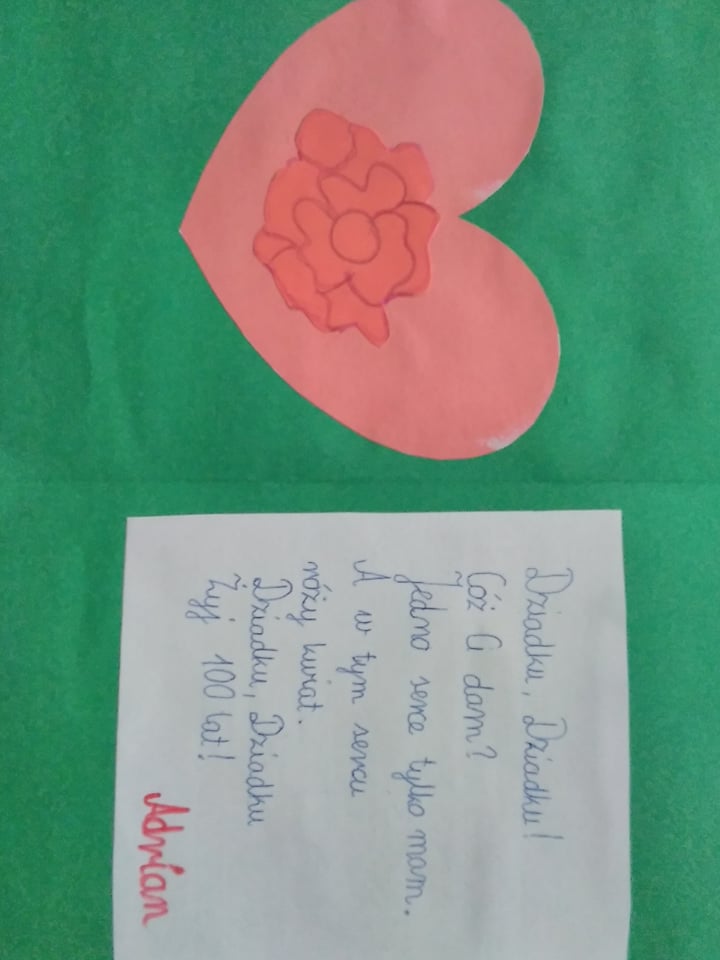 Dziadku, Dziadku!
Cóż Ci dam?
Jedno serce tylko mam.
A w tym sercu
róży kwiat.
Dziadku, Dziadku
Żyj 100 lat!
Adrian